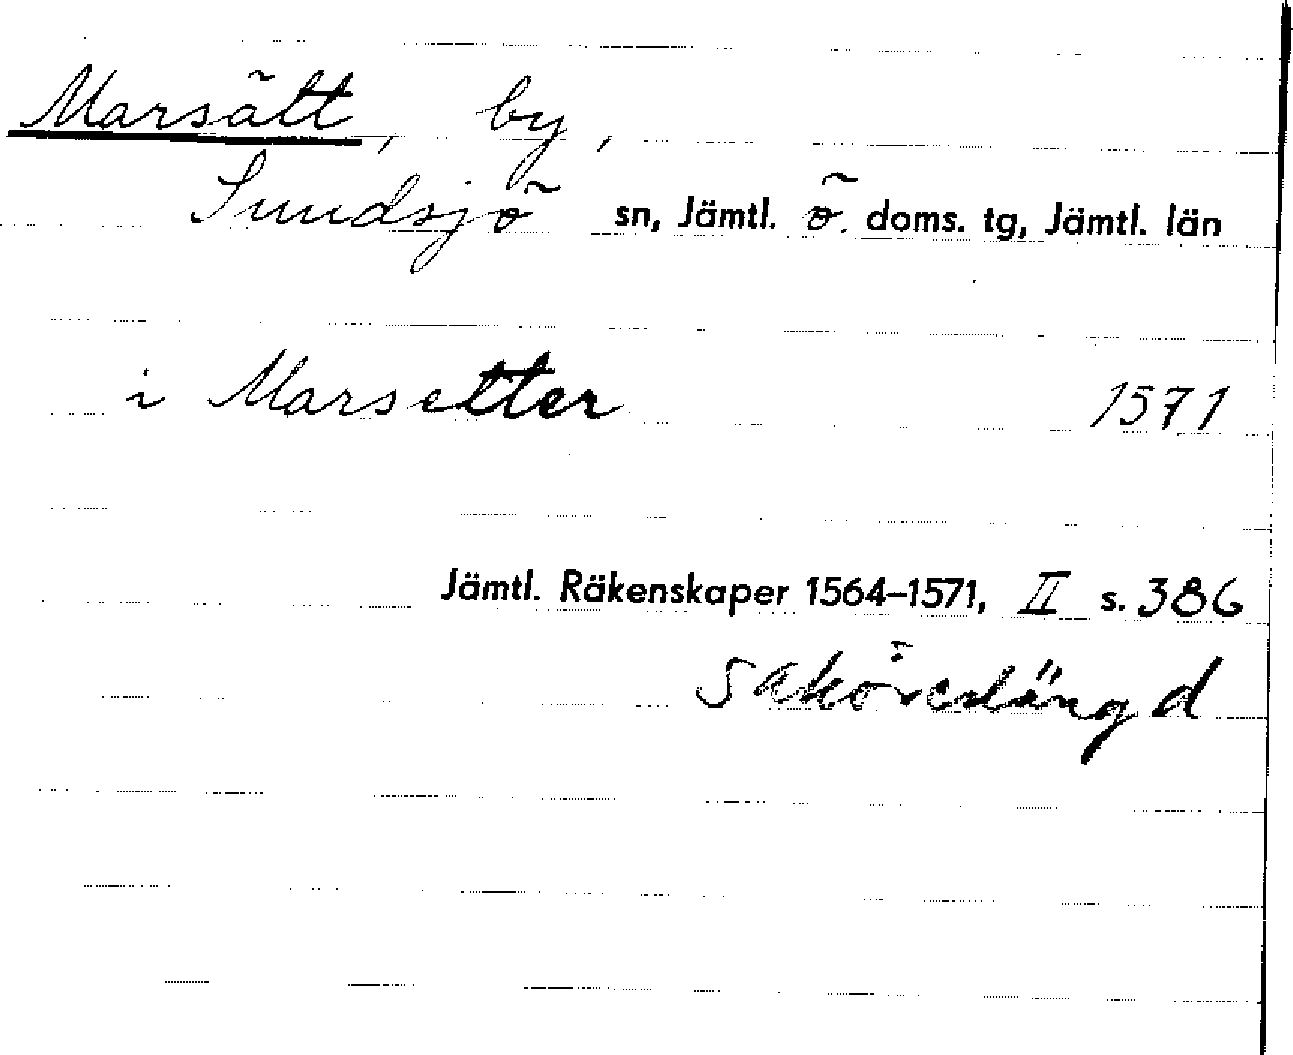 Marsätt, by,
Sundsjö sn, Jämtl. ö. doms. tg, Jämtl. län
i Marsetter 1571
Jämtl. Räkenskaper 1564–1571, II s. 386
Saköreslängd